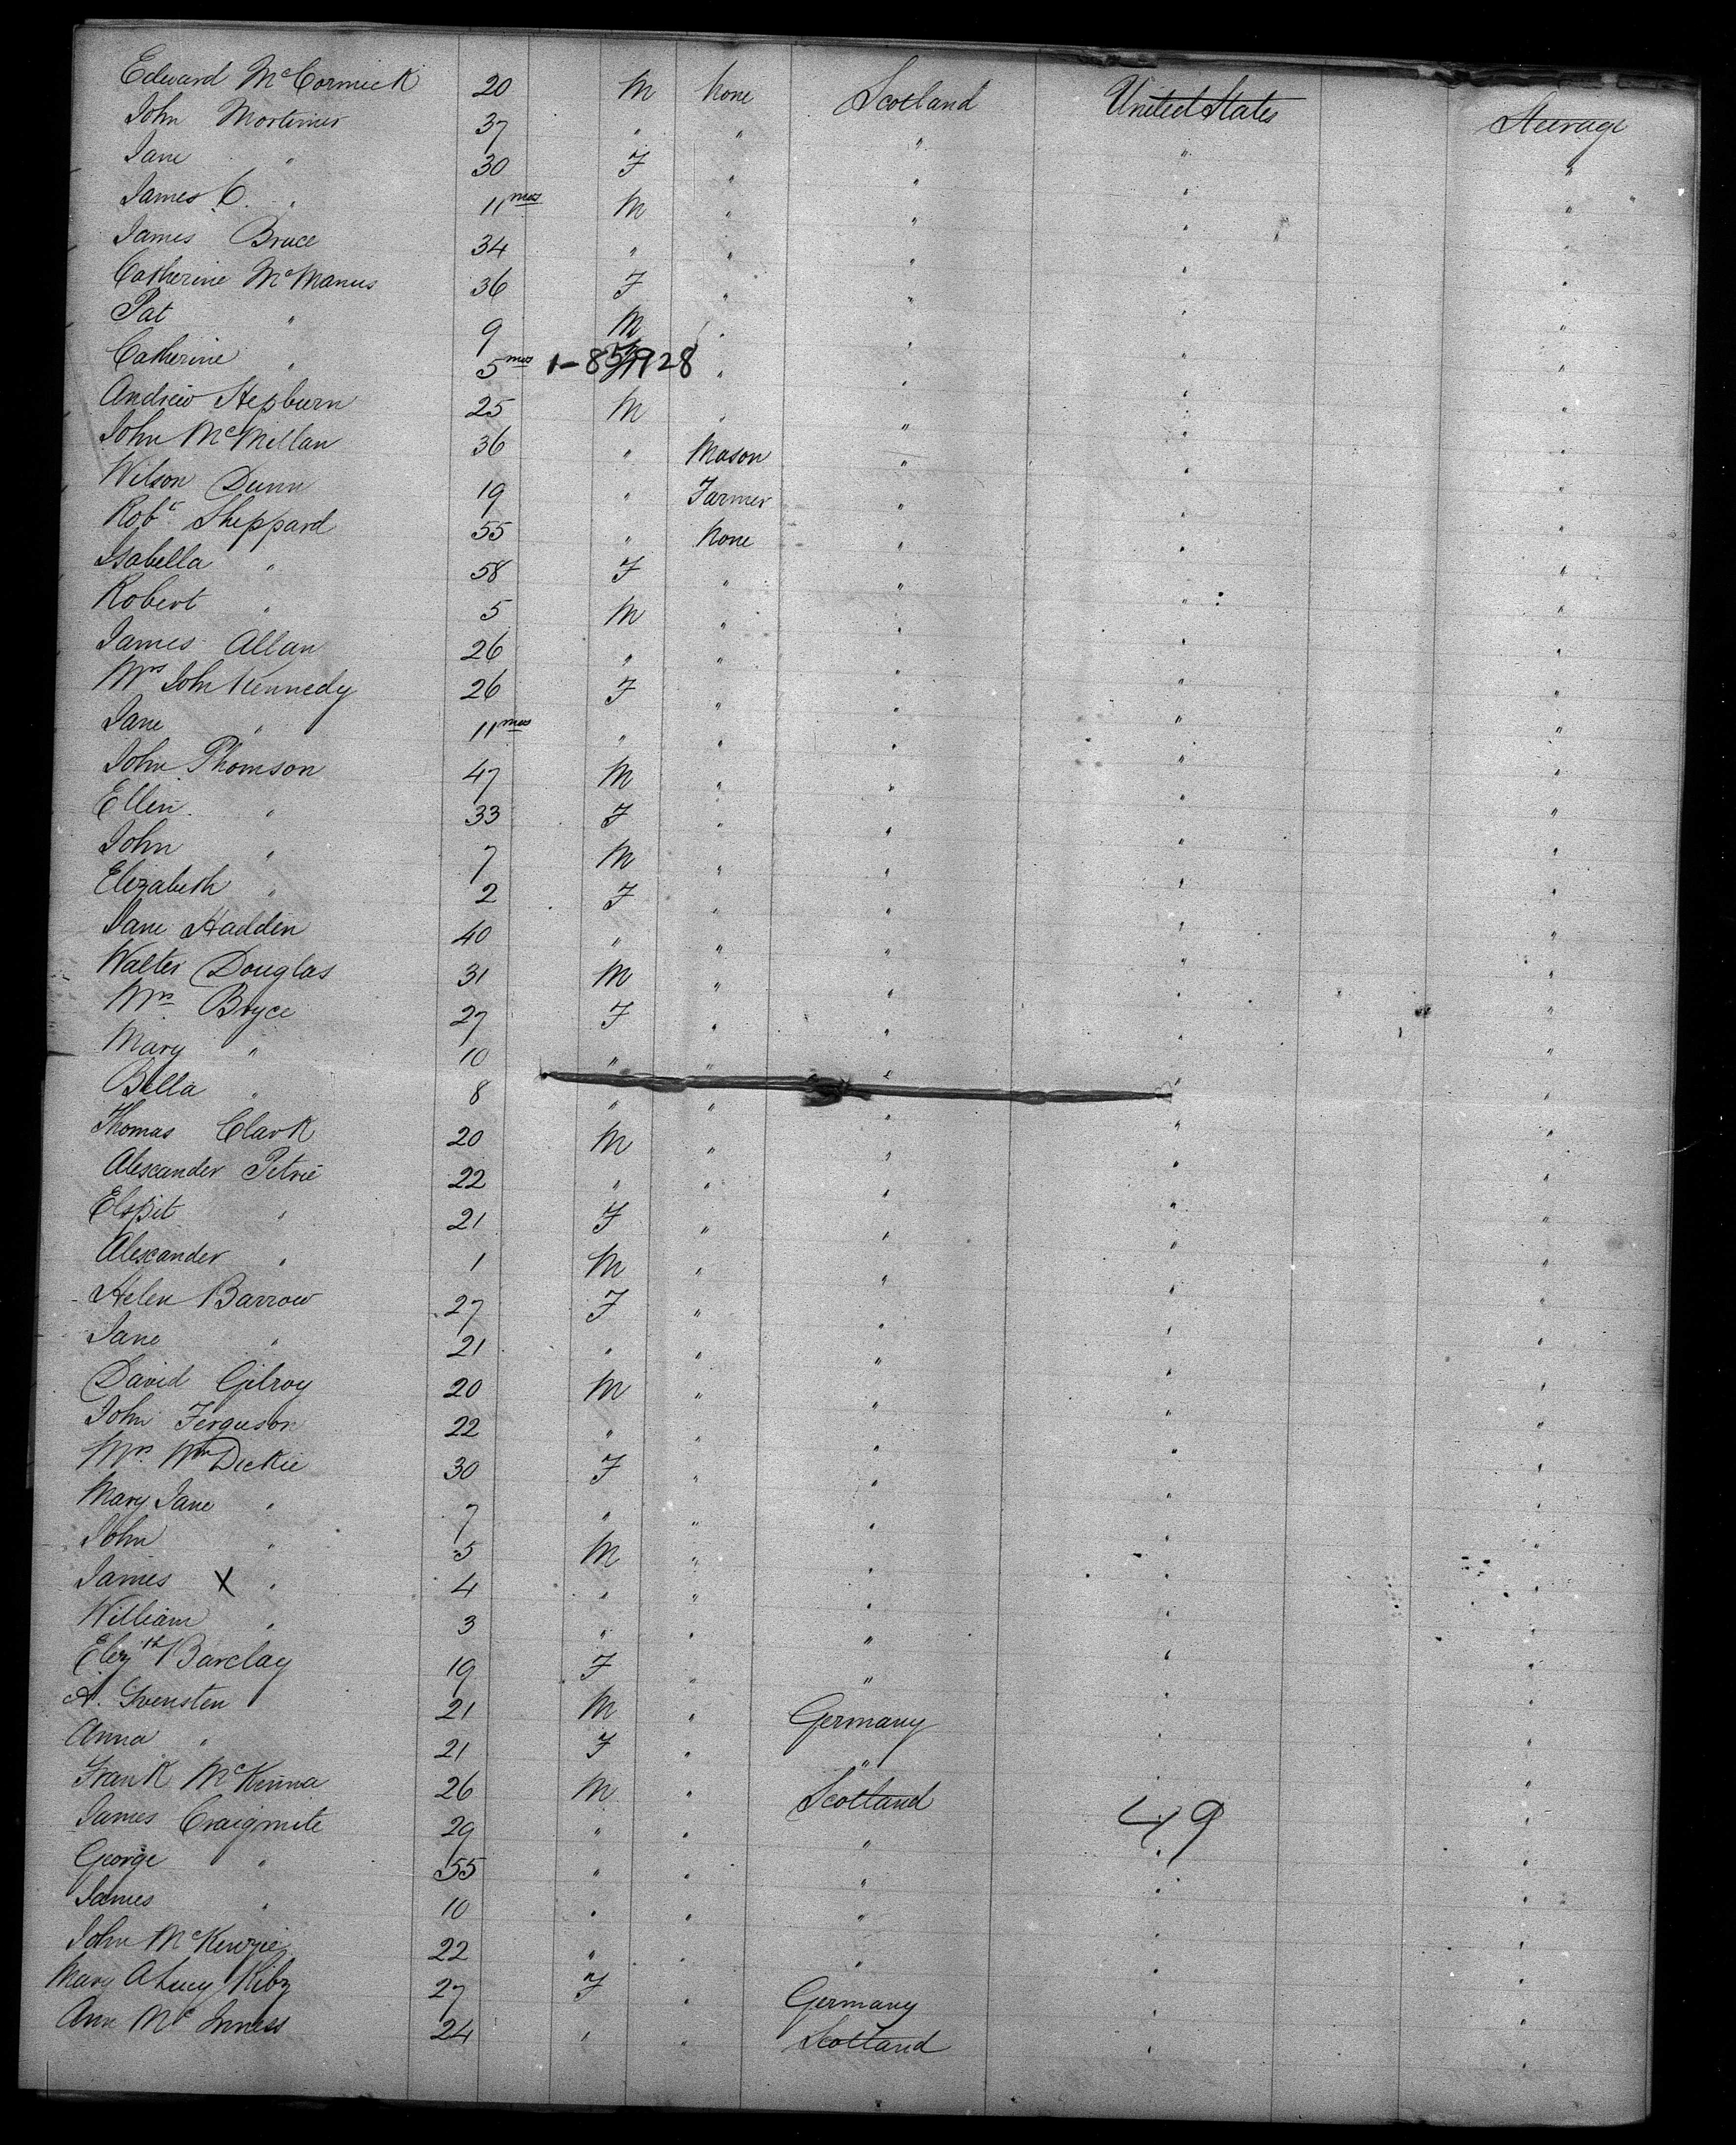 Edward McCormick 20 M None Scotland United States Steerage
John Mortimer 37 " " " " "
Jane " 30 F " " " "
James C. " 11 mos M " " " "
James Bruce 34 " " " " "
Catherine McManus 36 F " " " "
Pat " 9 M " " " "
Catherine " 5 mos 1-851928 " " " "
Andrew Hepburn 25 M " " " "
John McMillan 36 " Mason " " "
Wilson Dunn 19 " Farmer " " "
Robt Sheppard 55 " None " " "
Isabella " 58 F " " " "
Robert " 5 M " " " "
James Allan 26 " " " " "
Mrs John Kennedy 26 F " " " "
Jane " 11 mos " " " " "
John Thomson 47 M " " " "
Ellen " 33 F " " " "
John " 7 M " " " "
Elizabeth " 2 F " " " "
Jane Hadden 40 " " " " "
Walter Douglas 31 M " " " "
Mrs Bryce 27 F " " " "
Mary " 10 " " " " "
Bella " 8 " " " " "
Thomas Clark 20 M " " " "
Alexander Petrie 22 " " " " "
Elspit " 21 F " " " "
Alexander " 1 M " " " "
Helen Barrow 27 F " " " "
Jane " 21 " " " " "
David Gilroy 20 M " " " "
John Ferguson 22 " " " " "
Mrs. Wm Dickie 30 F " " " "
Mary Jane " 7 " " " " "
John " 5 M " " " "
James X " 4 " " " " "
William " 3 " " " " "
Elizth Barclay 19 F " " " "
A. Svensten 21 M " Germany " "
Anna " 21 F " " " "
Frank McKenna 26 M " Scotland " "
James Craigmile 29 " " " 49 " "
George " 55 " " " " "
James " 10 " " " " "
John McKenzie 22 " " " " "
Mary A Lucy 27 F " Germany " "
Ann McInness 24 " " Scotland " "